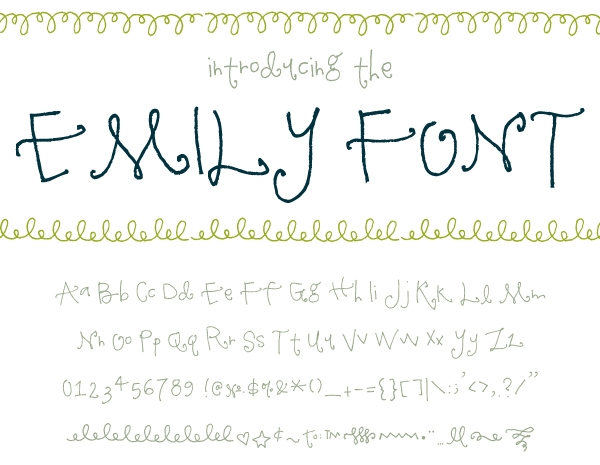 introducing the
EMILY FONT
Aa Bb Cc Dd Ee Ff Gg Hh Ii Jj Kk Ll Mm
Nn Oo Pp Qq Rr Ss Tt Uu Vv Ww Xx Yy Zz
0123456789 !@#$%&*()_+-={}[]|\:;'<>,.?/"